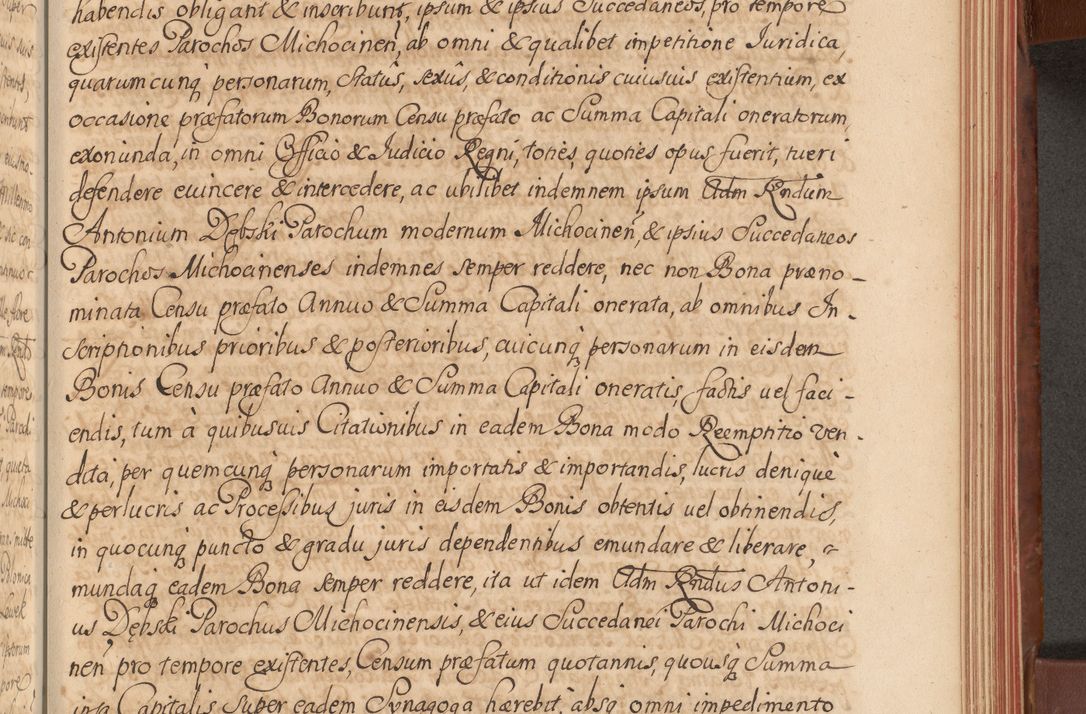 habendis obligant & inscribunt, ipsum & ipsius Succedaneos, pro tempore
existentes Parochos Michocinen, ab omni & qualibet impetitione Juridica,
quarumcunq personarum, Statûs, sexûs, & conditionis cuiusuis existentium, ex
occasione præfatorum Bonorum Censu præfato ac Summa Capitali oneratorum,
exoriunda, in omni Officio & Judicio Regni, toties, quoties opus fuerit, tueri
defendere euincere & intercedere, ac ubilibet indemnem ipsum Adm Rndum
Antonium Dębski Parochum modernum Michocinen, & ipsius Succedaneos
Parochos Michocinenses indemnes semper reddere, nec non Bona præno-
minata Censu præfato Annuo & Summa Capitali onerata, ab omnibus In-
scriptionibus prioribus & posterioribus, cuicunq personarum in eisdem
Bonis Censu præfato Annuo & Summa Capitali oneratis, factis uel faci-
endis, tum à quibusuis Citationibus in eadem Bona modo Reemptitio Ven-
dita, per quemcunq personarum importatis & importandis, lucris deniquè
& perlucris ac Processibus juris in eisdem Bonis obtentis uel obtinendis,
in quocunq puncto & gradu juris dependentibus emundare & liberare, e-
mundaq eadem Bona semper reddere, ita ut idem Adm Rndus Antoni-
us Dębski Parochus Michocinensis, & eius Succedanei Parochi Michoci
nen pro tempore existentes, Censum præfatum quotannis, quousq Summa
ista Capitalis super eadem Synagoga hærebit, absq omni impedimento